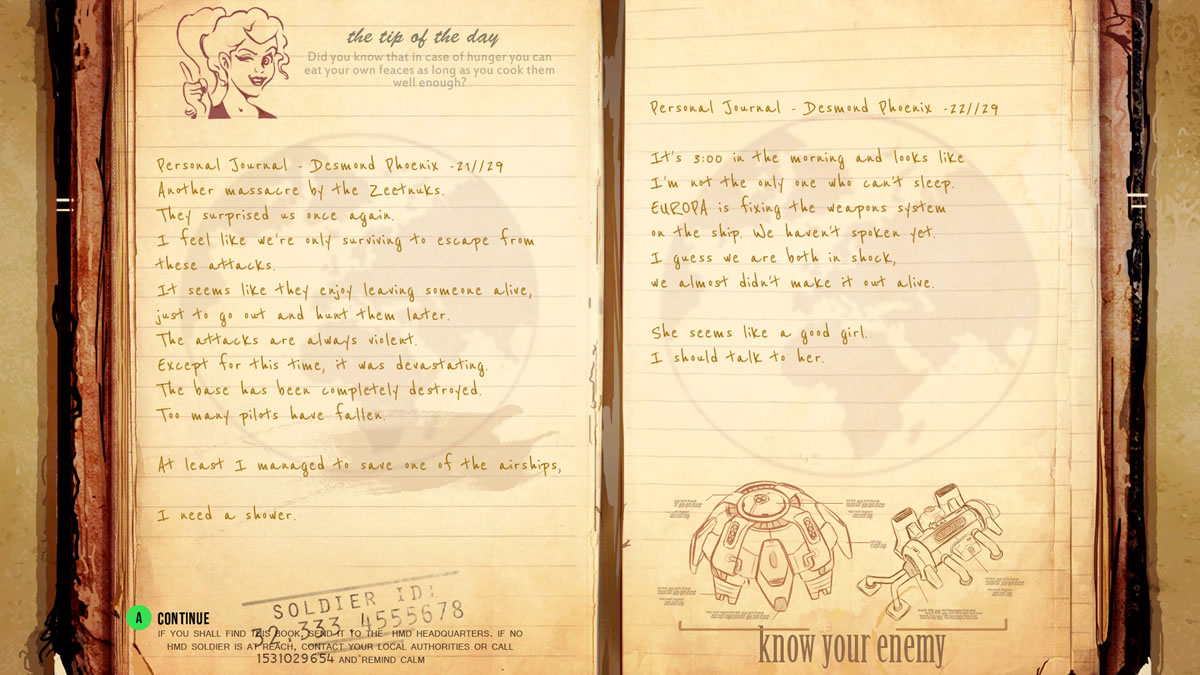 the tip of the day
Did you know that in case of hunger you can
eat your own feaces as long as you cook them
well enough?
Personal Journal - Desmond Phoenix -21//29
Another massacre by the Zeetnuks.
They surprised us once again.
I feel like we're only surviving to escape from
these attacks.
It seems like they enjoy leaving someone alive,
just to go out and hunt them later.
The attacks are always violent.
Except for this time, it was devastating.
The base has been completely destroyed.
Too many pilots have fallen.
At least I managed to save one of the airships,
I need a shower.
SOLDIER ID:
32.333.4555678
A CONTINUE
IF YOU SHALL FIND THIS BOOK, SEND IT TO THE HMD HEADQUARTERS. IF NO
HMD SOLDIER IS AT REACH, CONTACT YOUR LOCAL AUTHORITIES OR CALL
1531029654 AND REMIND CALM
Personal Journal - Desmond Phoenix -22//29
It's 3:00 in the morning and looks like
I'm not the only one who can't sleep.
EUROPA is fixing the weapons system
on the ship. We haven't spoken yet.
I guess we are both in shock,
we almost didn't make it out alive.
She seems like a good girl.
I should talk to her.
know your enemy